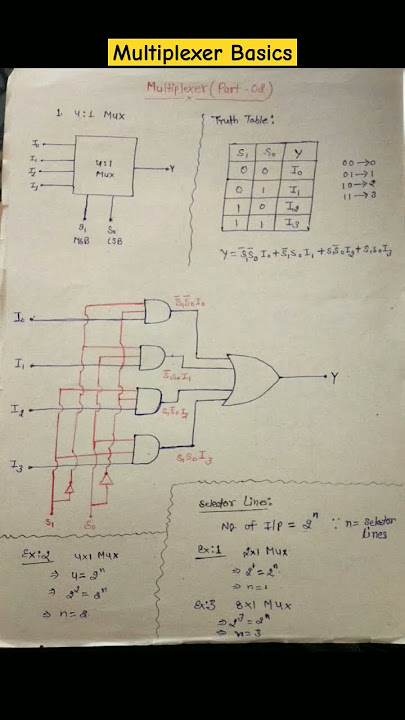 Multiplexer Basics
Multiplexer (Part-02)
1. 4:1 Mux
I₀
I₁
I₂
I₃
4:1
Mux
Y
S₁ S₀
MSB LSB
Truth Table:
S₁ S₀ Y
0 0 I₀
0 1 I₁
1 0 I₂
1 1 I₃
00→0
01→1
10→2
11→3
Y = S̅₁S̅₀I₀ + S̅₁S₀I₁ + S₁S̅₀I₂ + S₁S₀I₃
I₀
S̅₁S̅₀I₀
I₁
S̅₁S₀I₁
I₂
S₁S̅₀I₂
I₃
S₁S₀I₃
Y
S₁ S₀
Selector Lines:
No. of I/P = 2ⁿ ∵ n = selector
lines
Ex:1 2x1 Mux
⇒ 2¹ = 2ⁿ
⇒ n=1
Ex:2 4x1 Mux
⇒ 4=2ⁿ
⇒ 2²=2ⁿ
⇒ n=2
Ex:3 8x1 Mux
⇒ 2³=2ⁿ
⇒ n=3